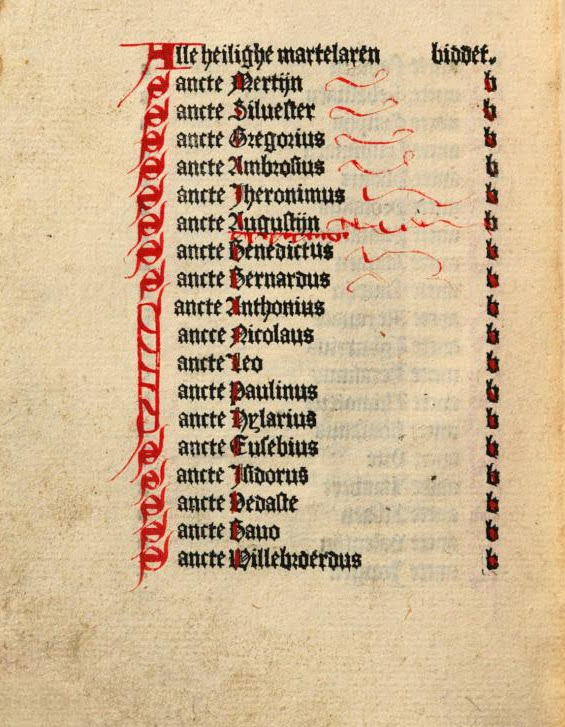 Alle heilighe martelaren biddet.
Sancte Mertijn b
Sancte Siluester b
Sancte Gregorius b
Sancte Ambrosius b
Sancte Jheronimus b
Sancte Augustijn b
Sancte Benedictus b
Sancte Bernardus b
Sancte Anthonius b
Sancte Nicolaus b
Sancte Leo b
Sancte Paulinus b
Sancte Hylarius b
Sancte Eusebius b
Sancte Isidorus b
Sancte Vedaste b
Sancte Bauo b
Sancte Willebroerdus b